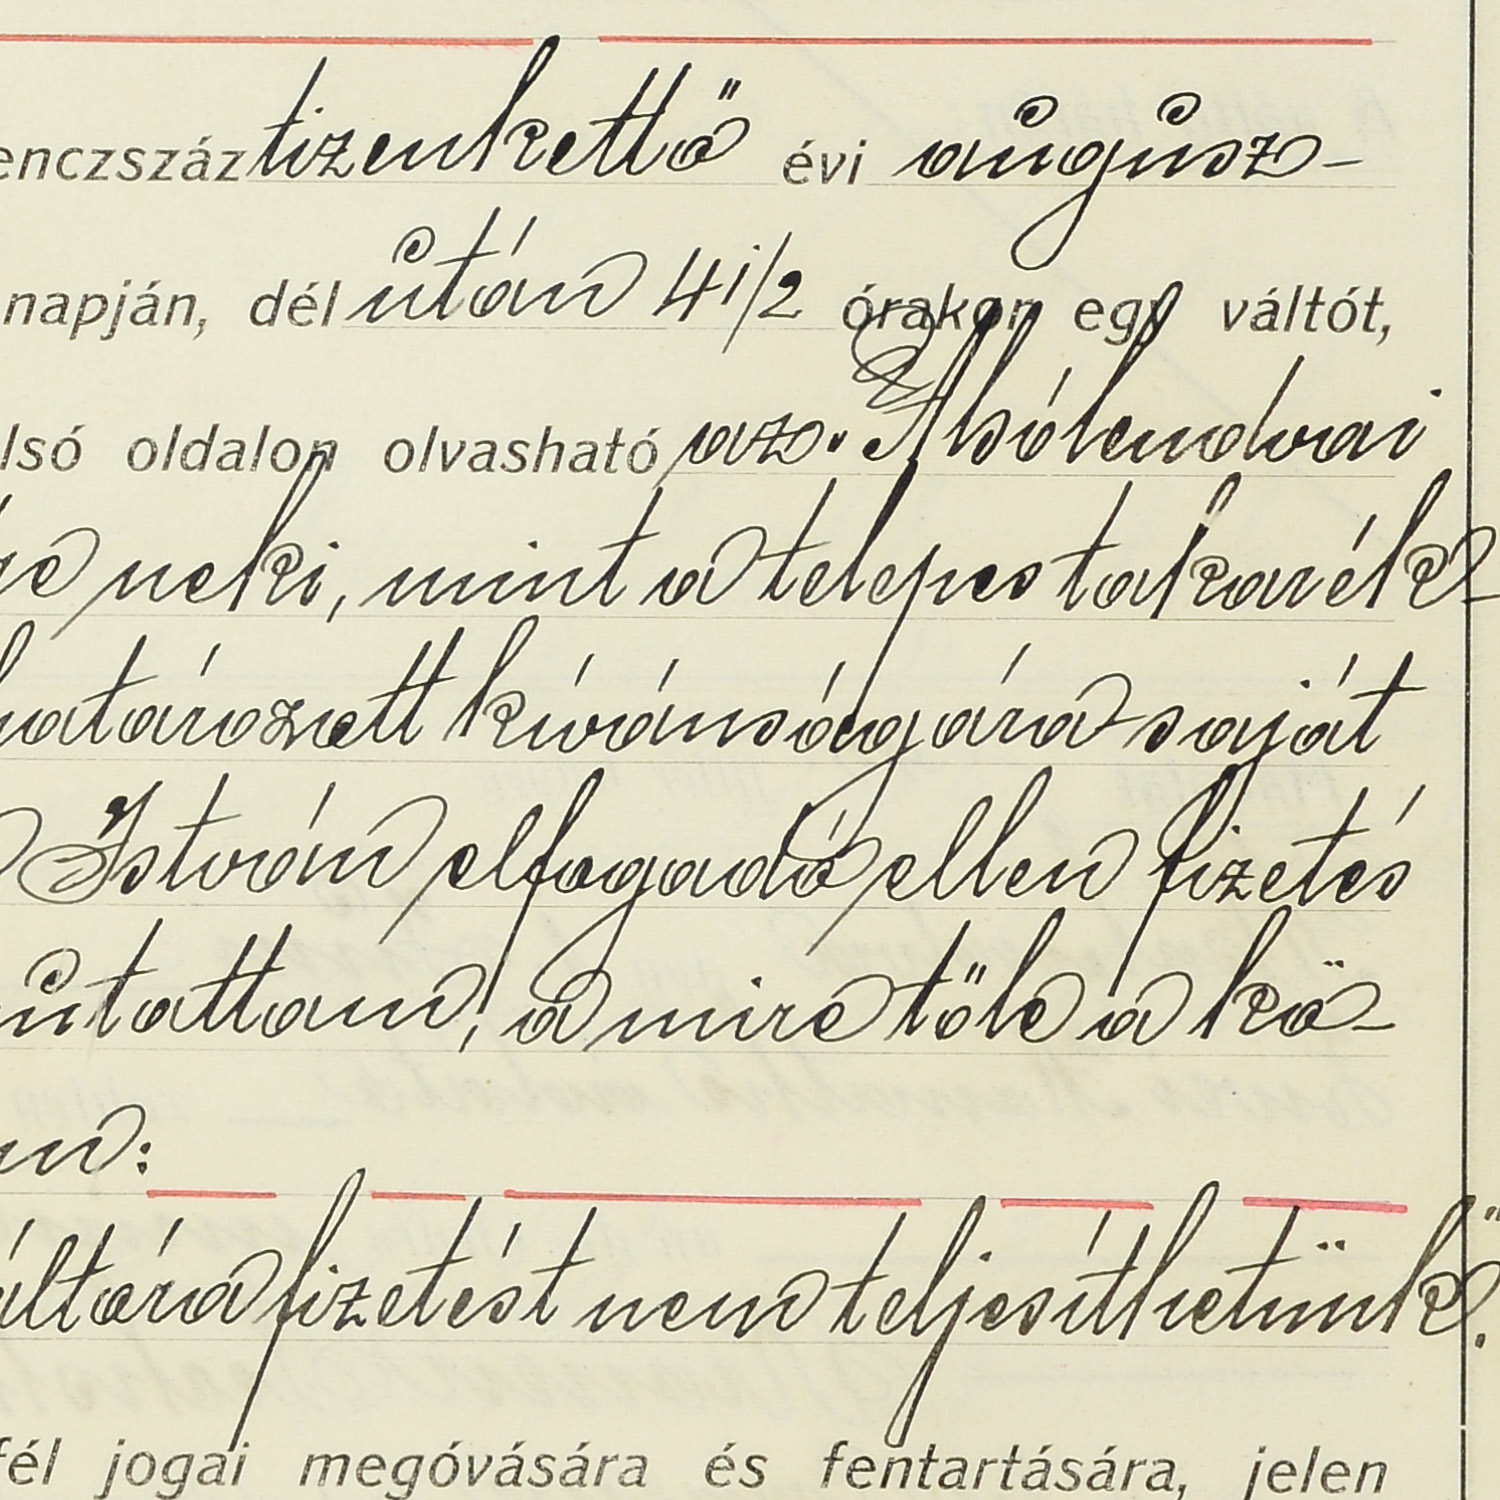 enczszáz tizenkettő évi augusz-
napján, dél után 4 1/2 órakor egy váltót,
lsó oldalon olvasható az Alsólendvai
neki, mint a telepes takarék-
határozott kivánságára saját
István elfogadó ellen fizetés
mutattam, a mire tőle a kö-
:
fizetést nem teljesíthetünk.
fél jogai megóvására és fentartására, jelen